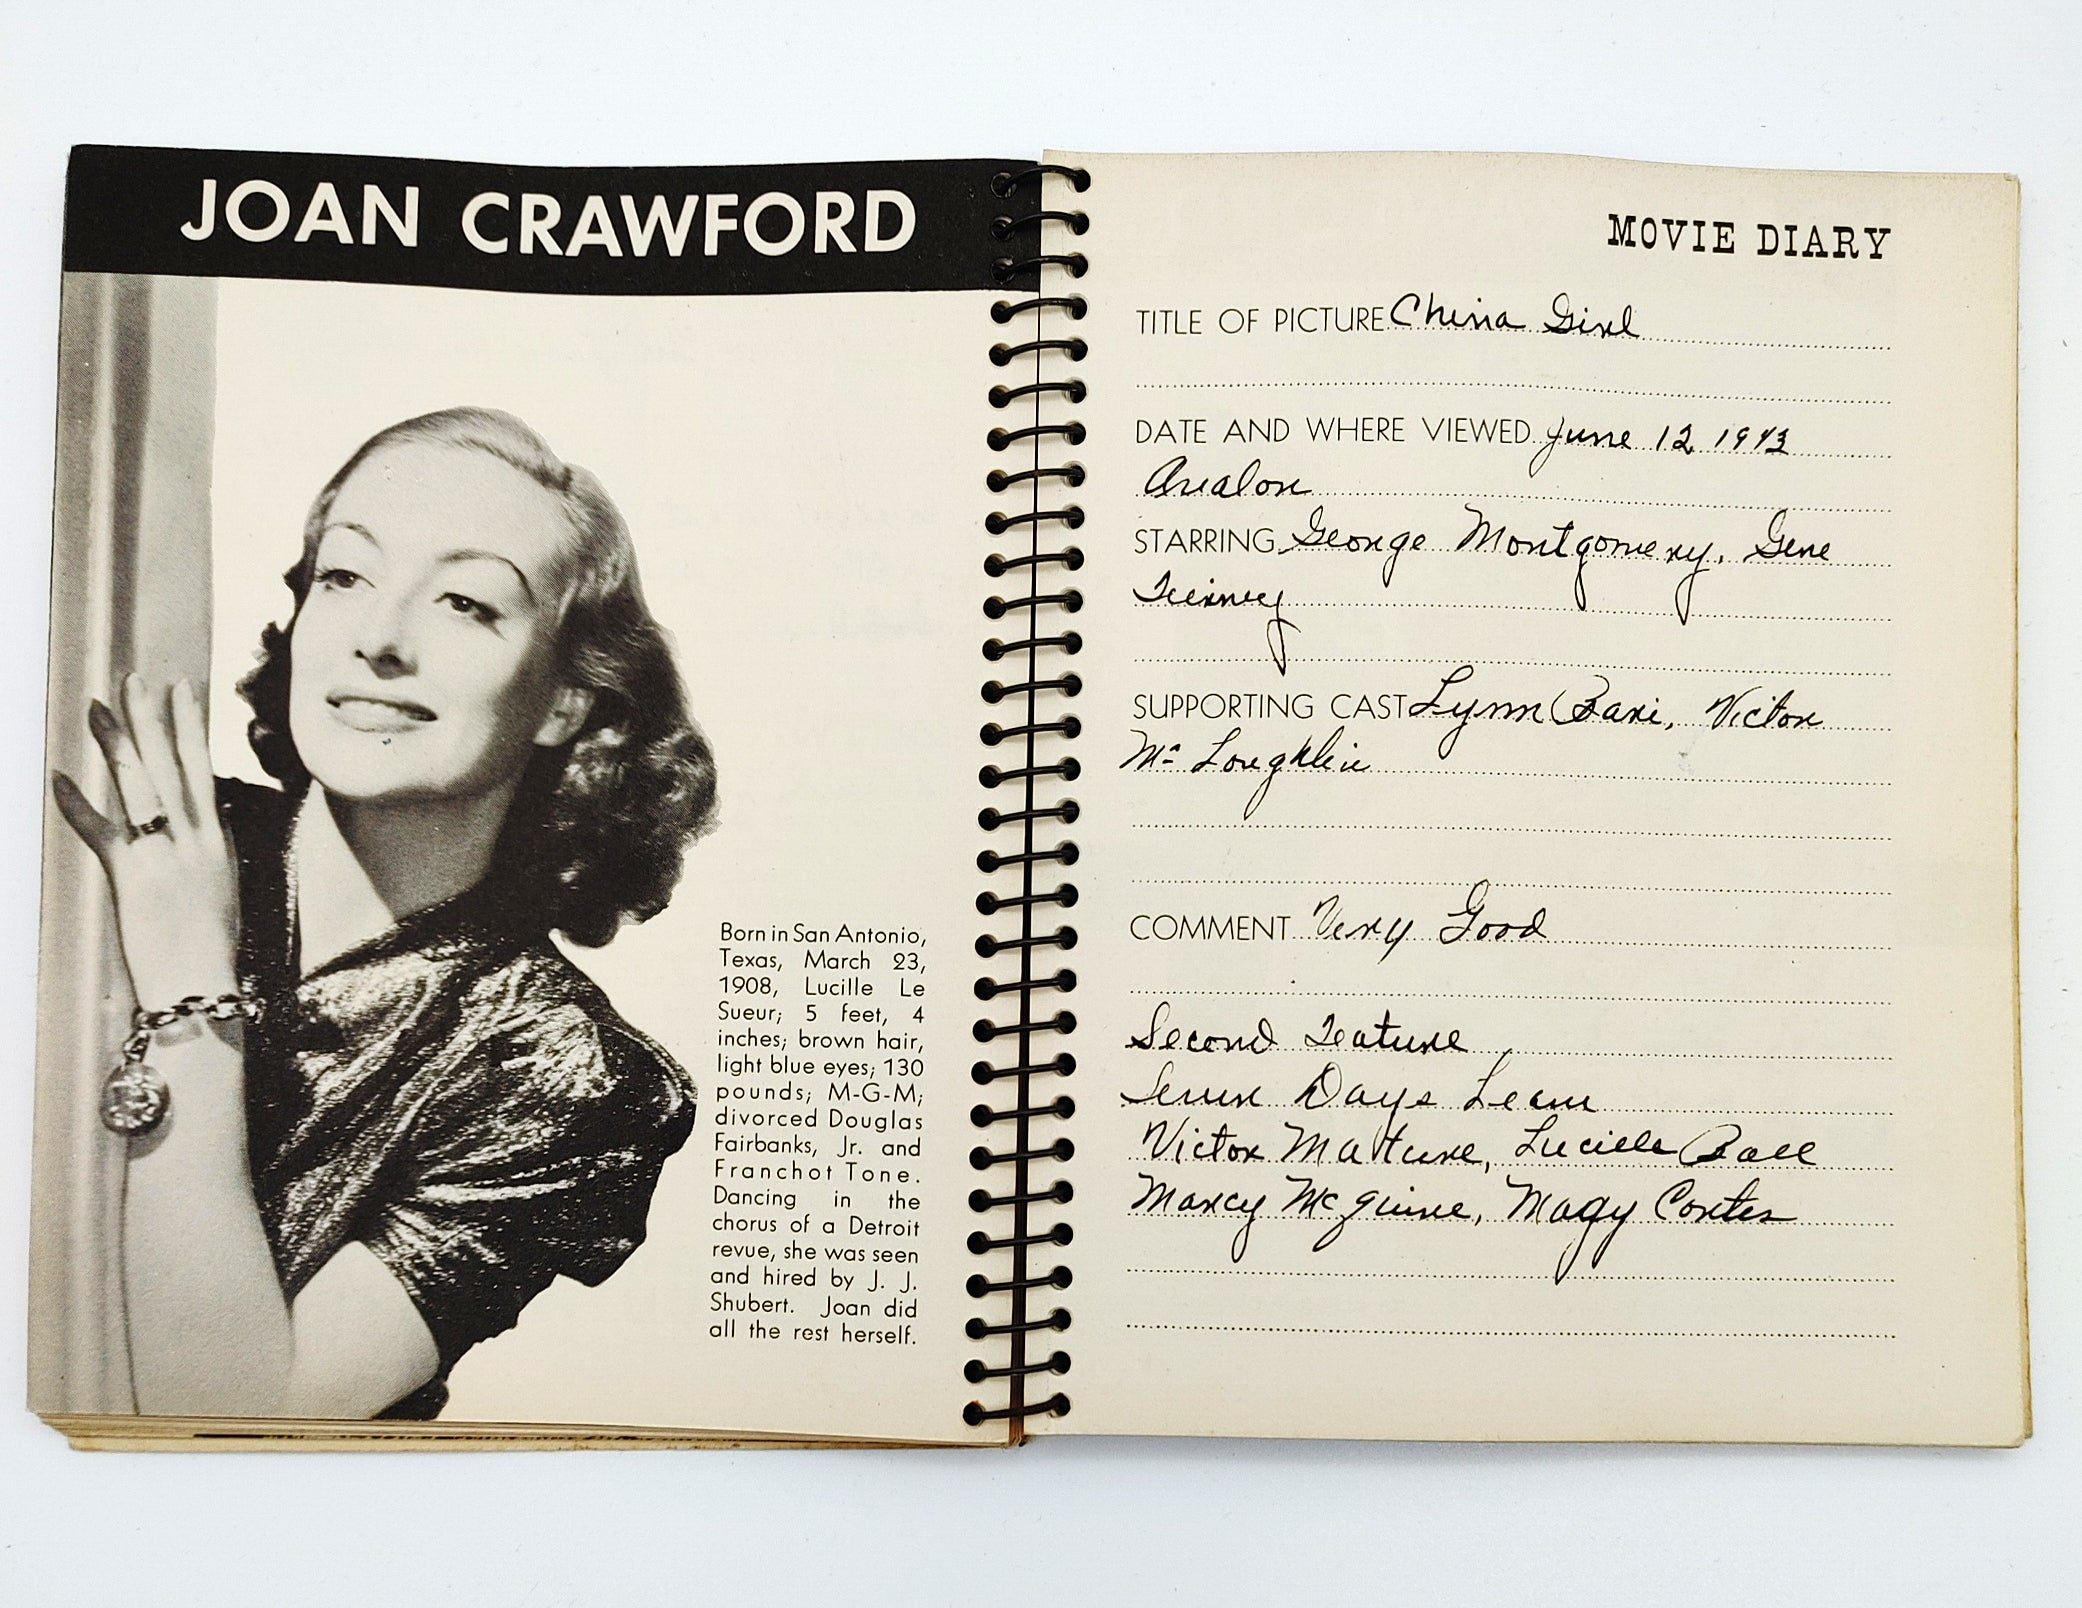 JOAN CRAWFORD
Born in San Antonio,
Texas, March 23,
1908, Lucille Le
Sueur; 5 feet, 4
inches; brown hair,
light blue eyes; 130
pounds; M-G-M;
divorced Douglas
Fairbanks, Jr. and
Franchot Tone.
Dancing in the
chorus of a Detroit
revue, she was seen
and hired by J. J.
Shubert. Joan did
all the rest herself.
MOVIE DIARY
TITLE OF PICTURE China Girl
DATE AND WHERE VIEWED June 12 1943
Avalon
STARRING George Montgomery, Gene
Tierney
SUPPORTING CAST Lynn Bari, Victor
Mc Loughlin
COMMENT Very Good
Second Feature
Seven Days Leave
Victor Mature, Lucille Ball
Marcy McGuire, Mapy Cortes